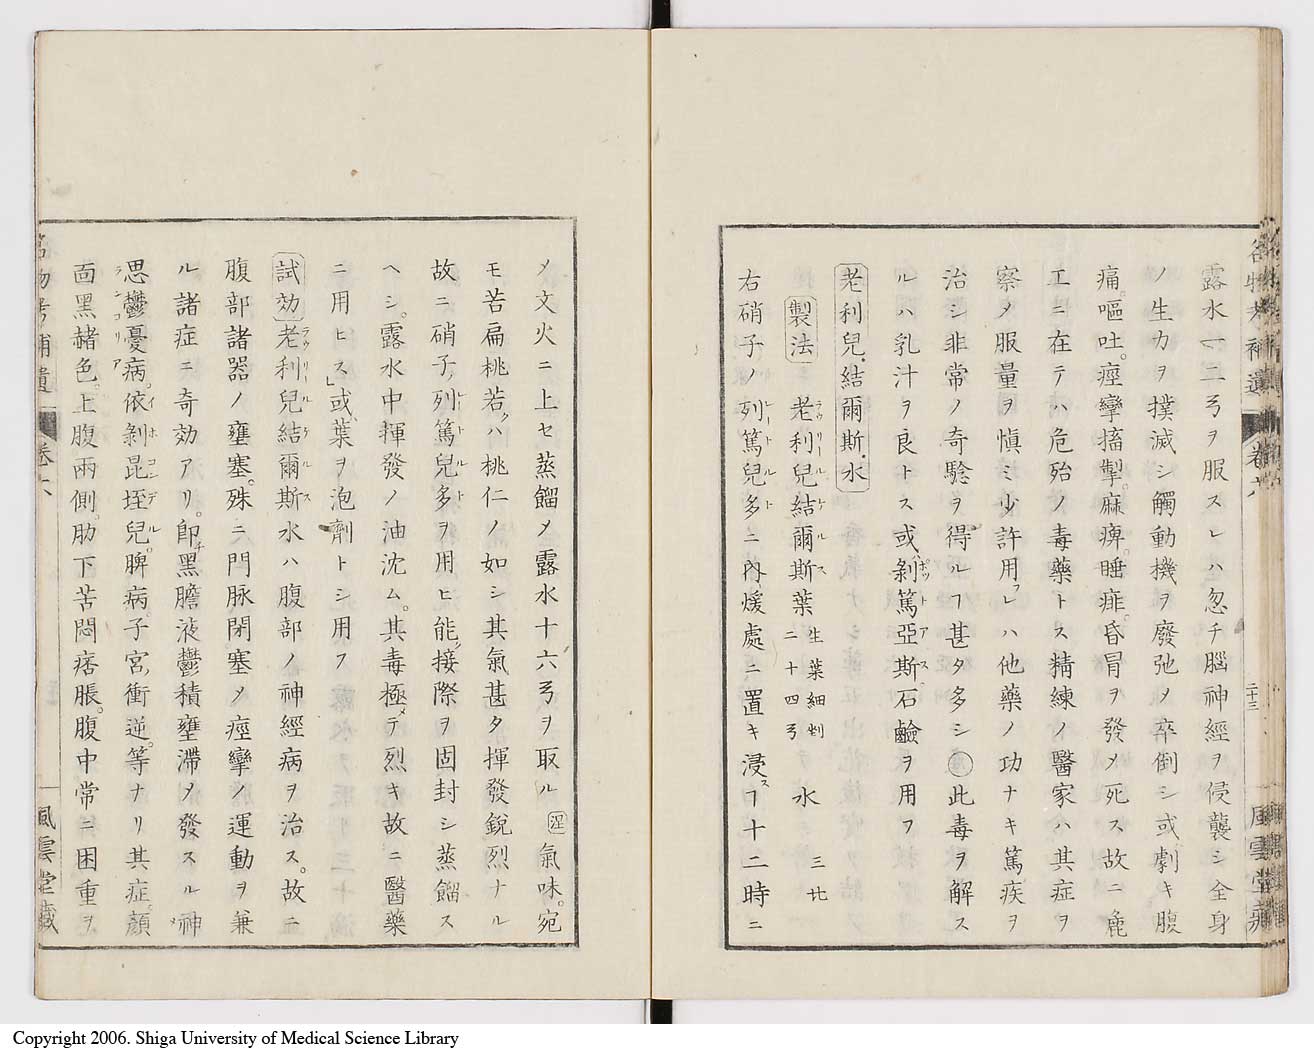 露水一二弓ヲ服スレハ忽チ腦神経ヲ侵襲シ全身
ノ生力ヲ撲滅シ觸動機ヲ廢弛メ卒倒シ或劇キ腹
痛。嘔吐。痙攣搐掣。麻痺。睡痱。昏冒ヲ發メ死ス故ニ麁
工ニ在テハ危殆ノ毒藥トス精練ノ醫家ハ其症ヲ
察メ服量ヲ愼ミ少許用レハ他藥ノ功ナキ篤疾ヲ
治シ非常ノ奇驗ヲ得ルヿ甚タ多シ○此毒ヲ解ス
ルハ乳汁ヲ良トス或剝篤亞斯石鹼ヲ用フ
老利兒結爾斯水
製法 老利兒結爾斯葉 生葉細剉 二十四弓 水 三
右硝子ノ列篤兒多ニ內煖處ニ置キ浸スヿ十二時ニ
名物考補遺 卷六 二十三 風雲堂藏
メ文火ニ上セ蒸餾メ露水十六弓ヲ取ル 氣味。宛
モ苦扁桃若クハ桃仁ノ如シ其氣甚タ揮發銳烈ナル
故ニ硝子ノ列篤兒多ヲ用ヒ能ク接際ヲ固封シ蒸餾ス
ヘシ。露水中揮發ノ油沈ム。其毒極メテ烈キ故ニ醫藥
ニ用ヒス」或葉ヲ泡劑トシ用フ
試効 老利兒結爾斯水ハ腹部ノ神經病ヲ治ス。故ニ
腹部諸器ノ壅塞。殊ニ門脉閉塞メ痙攣ノ運動ヲ兼
ル諸症ニ奇効アリ。卽チ黑膽液鬱積壅滯メ發スル神
思鬱憂病。依剝昆垤兒。脾病子宮衝逆。等ナリ其症。顏
面黑赭色。上腹兩側。肋下苦悶痞脹。腹中常ニ困重ヲ
名物考補遺 卷六 風雲堂藏
Copyright 2006. Shiga University of Medical Science Library